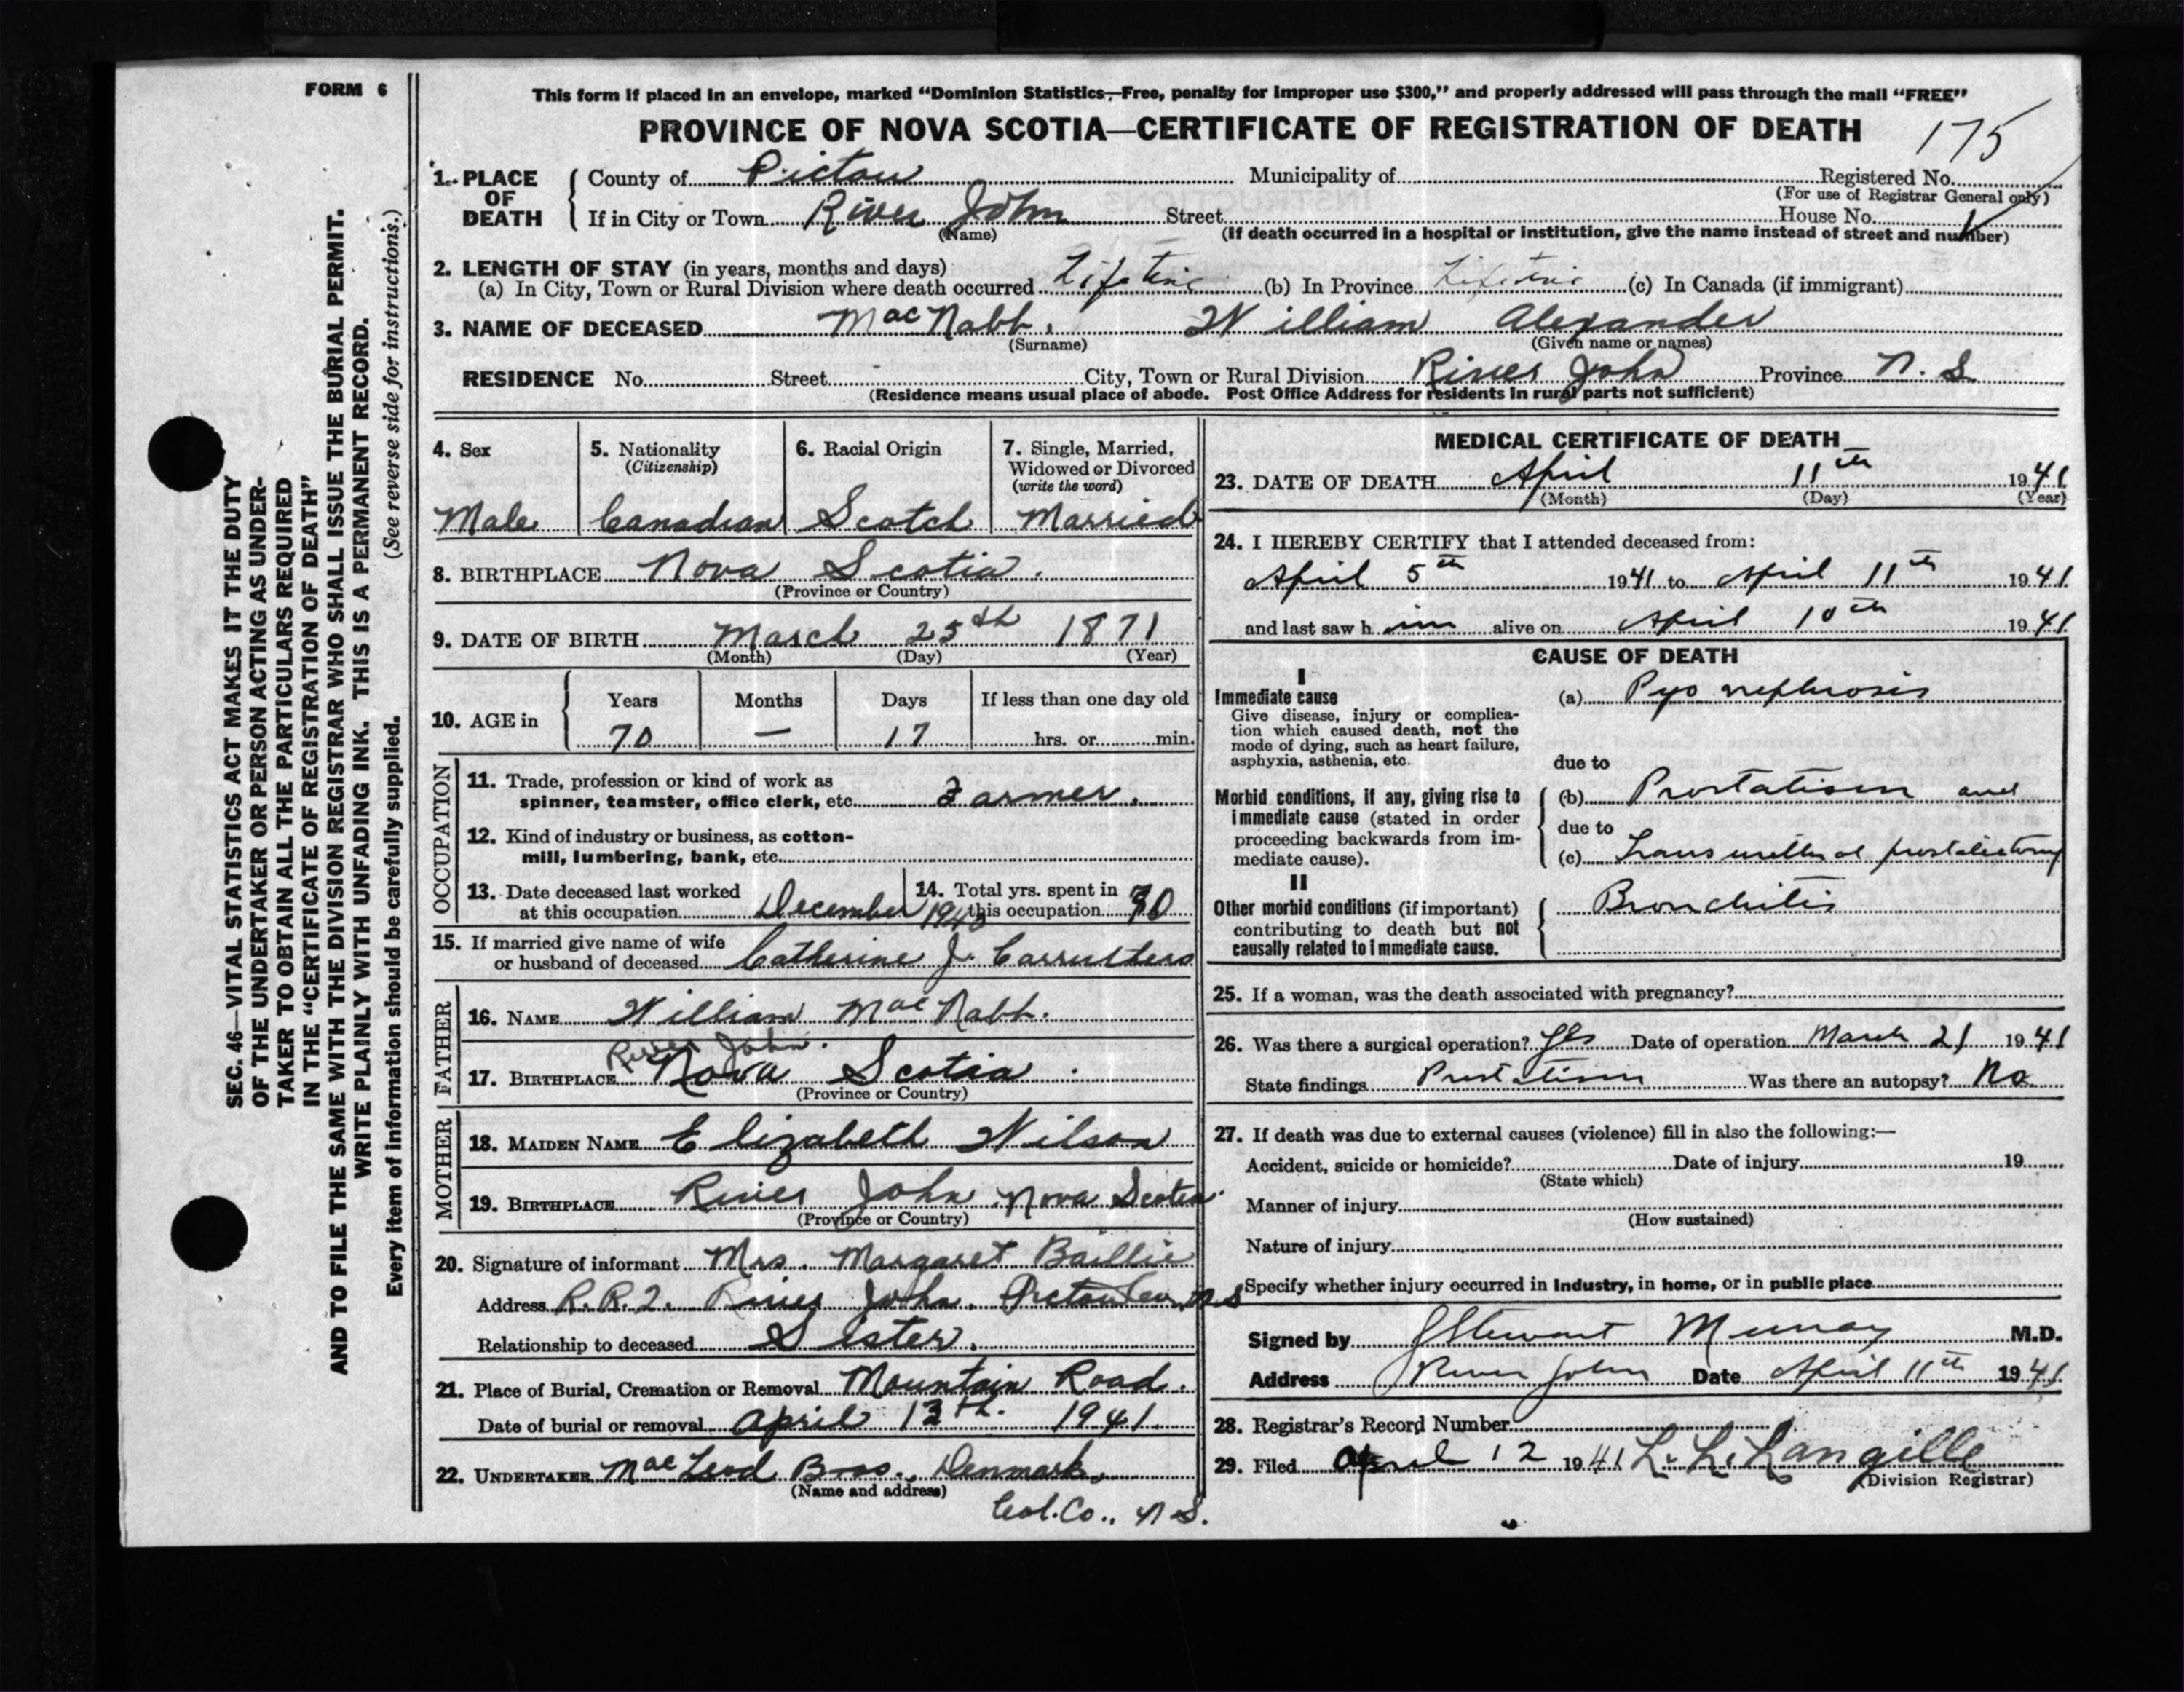 FORM 6
This form if placed in an envelope, marked "Dominion Statistics—Free, penalty for improper use $300," and properly addressed will pass through the mail "FREE"
PROVINCE OF NOVA SCOTIA—CERTIFICATE OF REGISTRATION OF DEATH
175
1. PLACE OF DEATH
County of Pictou Municipality of Registered No.
(For use of Registrar General only)
If in City or Town River John Street House No.
(Name) (If death occurred in a hospital or institution, give the name instead of street and number)
2. LENGTH OF STAY (in years, months and days)
(a) In City, Town or Rural Division where death occurred Life time (b) In Province Life time (c) In Canada (if immigrant)
3. NAME OF DECEASED MacNabb. William Alexander
(Surname) (Given name or names)
RESIDENCE No. Street City, Town or Rural Division River John Province N. S.
(Residence means usual place of abode. Post Office Address for residents in rural parts not sufficient)
4. Sex
Male
5. Nationality
(Citizenship)
Canadian
6. Racial Origin
Scotch
7. Single, Married,
Widowed or Divorced
(write the word)
Married
8. BIRTHPLACE Nova Scotia.
(Province or Country)
9. DATE OF BIRTH March 25th 1871
(Month) (Day) (Year)
10. AGE in
Years Months Days If less than one day old
70 — 17 hrs. or min.
OCCUPATION
11. Trade, profession or kind of work as
spinner, teamster, office clerk, etc. Farmer.
12. Kind of industry or business, as cotton-
mill, lumbering, bank, etc.
13. Date deceased last worked
at this occupation December 1940
14. Total yrs. spent in
this occupation
15. If married give name of wife
or husband of deceased Catherine J. Carruthers
FATHER
16. NAME William MacNabb.
River John.
17. BIRTHPLACE Nova Scotia.
(Province or Country)
MOTHER
18. MAIDEN NAME Elizabeth Wilson
19. BIRTHPLACE River John Nova Scotia.
(Province or Country)
20. Signature of informant Mrs. Margaret Baillie
Address R.R.2. River John. Pictou Co. N.S
Relationship to deceased Sister.
21. Place of Burial, Cremation or Removal Mountain Road.
Date of burial or removal April 13th. 1941
22. UNDERTAKER MacLeod Bros., Denmark,
(Name and address)
Col. Co., N.S.
MEDICAL CERTIFICATE OF DEATH
23. DATE OF DEATH April 11th 1941
(Month) (Day) (Year)
24. I HEREBY CERTIFY that I attended deceased from:
April 5th 1941 to April 11th 1941
and last saw him alive on April 10th 1941
CAUSE OF DEATH
I
Immediate cause
(a) Pyo nephrosis
Give disease, injury or complica-
tion which caused death, not the
mode of dying, such as heart failure,
asphyxia, asthenia, etc.
due to
Morbid conditions, if any, giving rise to
immediate cause (stated in order
proceeding backwards from im-
mediate cause).
(b) Prostatism and
due to
(c) Trans urethral prostatectomy
II
Other morbid conditions (if important)
contributing to death but not
causally related to immediate cause.
Bronchitis
25. If a woman, was the death associated with pregnancy?
26. Was there a surgical operation? Yes Date of operation March 21 1941
State findings Prostatism Was there an autopsy? No
27. If death was due to external causes (violence) fill in also the following:—
Accident, suicide or homicide? Date of injury 19
(State which)
Manner of injury
(How sustained)
Nature of injury
Specify whether injury occurred in industry, in home, or in public place
Signed by J Stewart Murray M.D.
Address River John Date April 11th 1941
28. Registrar's Record Number
29. Filed April 12 1941 L. L. Langille
(Division Registrar)
SEC. 46—VITAL STATISTICS ACT MAKES IT THE DUTY
OF THE UNDERTAKER OR PERSON ACTING AS UNDER-
TAKER TO OBTAIN ALL THE PARTICULARS REQUIRED
IN THE "CERTIFICATE OF REGISTRATION OF DEATH"
AND TO FILE THE SAME WITH THE DIVISION REGISTRAR WHO SHALL ISSUE THE BURIAL PERMIT.
WRITE PLAINLY WITH UNFADING INK. THIS IS A PERMANENT RECORD.
Every item of information should be carefully supplied. (See reverse side for instructions.)